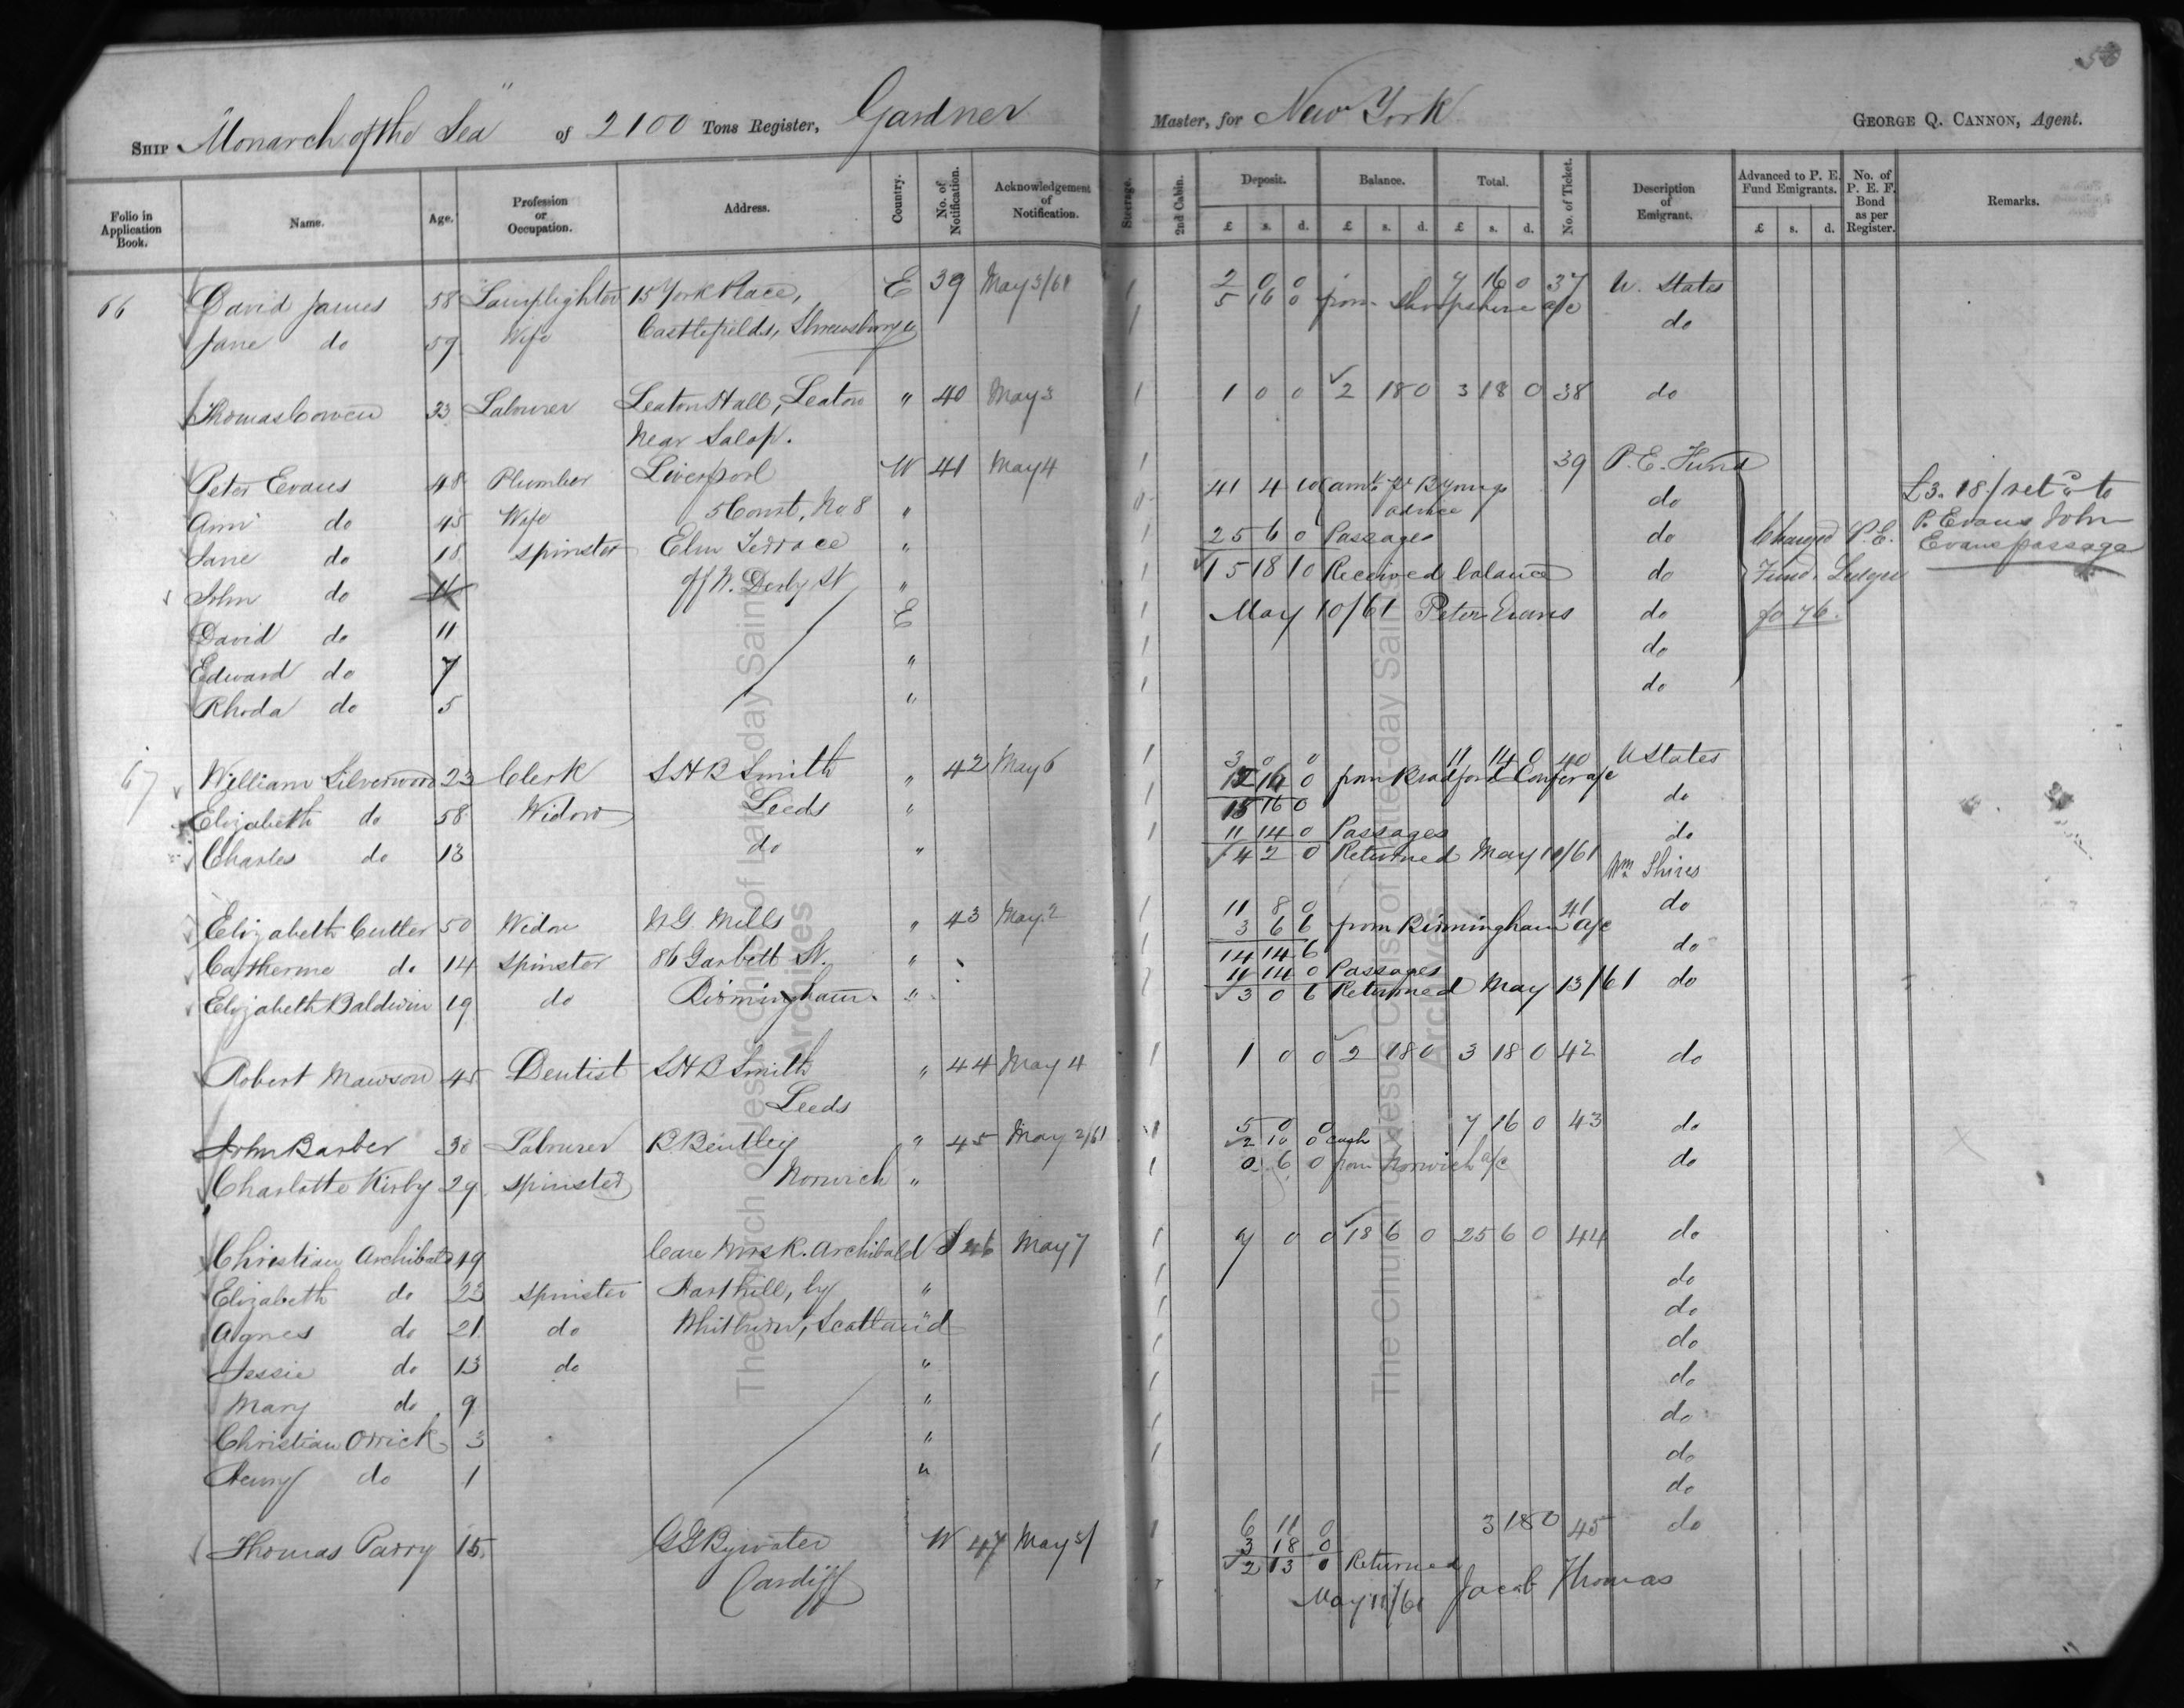 50
SHIP "Monarch of the Sea" of 2100 Tons Register, Gardner Master, for New York GEORGE Q. CANNON, Agent.
Folio in Application Book. Name. Age. Profession or Occupation. Address. Country. No. of Notification. Acknowledgement of Notification. Steerage. 2nd Cabin. Deposit. Balance. Total. No. of Ticket. Description of Emigrant. Advanced to P. E. Fund Emigrants. No. of P. E. F. Bond as per Register. Remarks.
£ s. d. £ s. d. £ s. d. £ s. d.
66 David James 58 Lamplighter 15 York Place, E 39 May 3/61 1 2 0 0 7 16 0 37 U. States
5 16 0 from Shropshire a/c
Jane do 59 Wife Castlefields, Shrewsbury " 1 do
Thomas Cowen 33 Labourer Leaton Hall, Leaton " 40 May 3 1 1 0 0 2 18 0 3 18 0 38 do
Near Salop.
Peter Evans 48 Plumber Liverpool W 41 May 4 1 39 P. E. Fund
41 4 10 (amt. pr B Youngs advice
Ann do 45 Wife 5 Court, No 8 " do
Jane do 18 Spinster Elm Terrace " 1 25 6 0 Passages do
John do off W. Derby St " 1 15 18 10 Received balance do
David do 11 E 1 May 10/61 Peter Evans do
Edward do 7 " 1 do
Rhoda do 5 " 1 do
Charged P. E.
Fund Ledger
fo 76.
£3. 18/ retd to
P. Evans John
Evans passage
67 William Silverwood 23 Clerk S H B Smith " 42 May 6 1 3 0 0 11 14 0 40 U States
12 16 0 from Bradford Confer a/c
Elizabeth do 58 Widow Leeds " 1 15 16 0 do
11 14 0 Passages
Charles do 13 do " 1 4 2 0 Returned May 10/61 do
Wm Shires
Elizabeth Cutler 50 Widow W G. Mills " 43 May 2 1 11 8 0 41 do
3 6 6 from Birmingham a/c
Catherine do 14 Spinster 86 Garbett St. " 1 14 14 6 do
11 14 0 Passages
Elizabeth Baldwin 19 do Birmingham. " 1 3 0 6 Returned May 13/61 do
Robert Mawson 45 Dentist S H B Smith " 44 May 4 1 1 0 0 2 18 0 3 18 0 42 do
Leeds
John Barber 30 Labourer B Bentley " 45 May 2/61 1 5 0 0 7 16 0 43 do
2 10 0 cash
Charlotte Kirby 29 Spinster Norwich " 1 0 6 0 from Norwich a/c do
Christian Archibald 49 Care Mrs R. Archibald S 46 May 7 1 7 0 0 18 6 0 25 6 0 44 do
Elizabeth do 23 Spinster Harthill, by " 1 do
Agnes do 21 do Whitburn, Scotland " 1 do
Jessie do 13 do " 1 do
Mary do 9 " 1 do
Christian Orrick 3 " 1 do
Henry do 1 " 1 do
do
Thomas Parry 15 G G Bywater W 47 May 5/ 1 6 11 0 3 18 0 45 do
3 18 0
Cardiff 2 13 0 Returned
May 11/61 Jacob Thomas
The Church of Jesus Christ of Latter-day Saints
Archives
The Church of Jesus Christ of Latter-day Saints
Archives